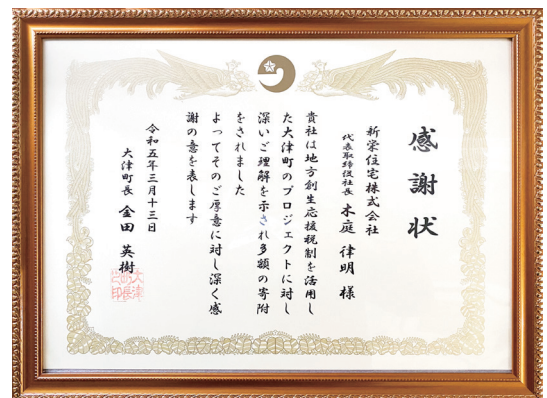 感謝状
新栄住宅株式会社
代表取締役社長 木庭 律明 様
貴社は地方創生応援税制を活用し
た大津町のプロジェクトに対し
深いご理解を示され多額の寄附
をされました
よってそのご厚意に対し深く感
謝の意を表します
令和五年三月十三日
大津町長 金田 英樹